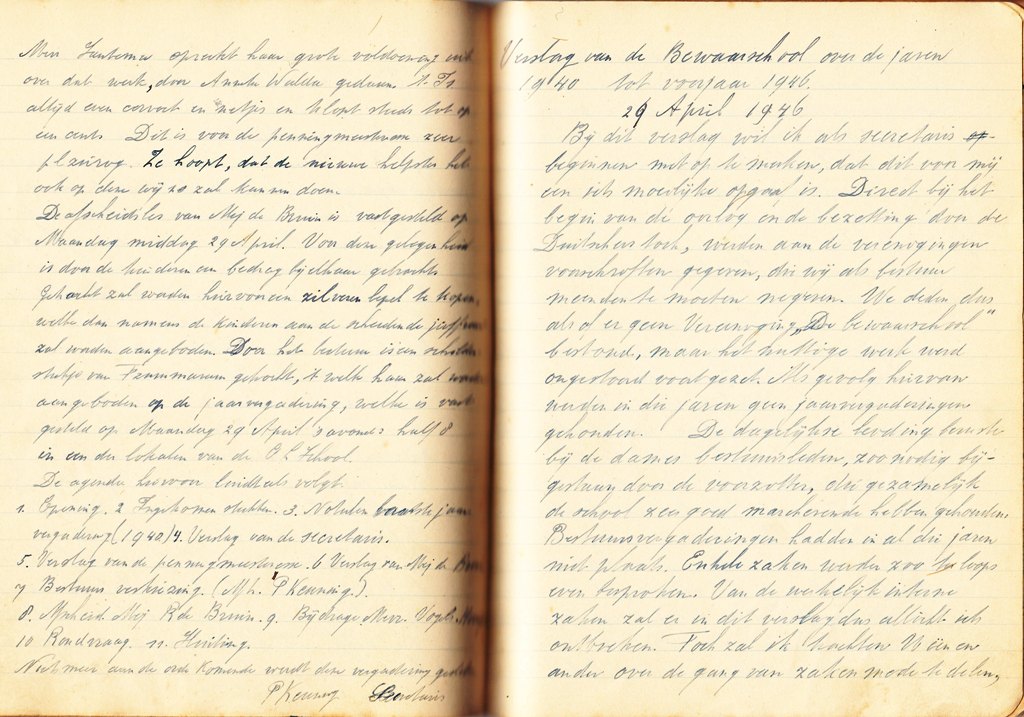 Mevr. Zantema spreekt haar grote voldoening uit
over dat werk, door Annete Wadda gedaan. 't Is
altijd even correct en netjes en klopt steeds tot op
een cent. Dit is voor de penningmeesteresse zeer
plezierig. Ze hoopt, dat de nieuwe helpster het
ook op deze wijze zal kunnen doen.
De afscheidsles van Mej de Bruin is vastgesteld op
Maandag middag 29 April. Voor deze gelegenheid
is door de kinderen een bedrag bijelkaar gebracht.
Getracht zal worden hiervoor een zilveren lepel te kopen,
welke dan namens de kinderen aan de scheidende juffrouw
zal worden aangeboden. Door het bestuur is een schilder-
stukje van gekocht, 't welk haar zal worden
aangeboden op de jaarvergadering, welke is vast
gesteld op Maandag 29 April 's avonds half 8
in een der lokalen van de O L School.
De agenda hiervoor luidt als volgt:
1. Opening. 2 Ingekomen stukken. 3. Notulen laatste jaar
vergadering (1940) 4. Verslag van de secretaris.
5. Verslag van de penningmeesteresse. 6 Verslag van Mej de Bruin
7 Bestuurs verkiezing. (Aftr. P Keuning.).
8. Afscheid Mej R de Bruin. 9. Bijdrage Mevr. Vogels
10 Rondvraag. 11. Sluiting.
Niets meer aan de orde komende werdt deze vergadering
P Keuning Secretaris
Verslag van de Bewaarschool over de jaren
1940 tot voorjaar 1946.
29 April 1946
Bij dit verslag wil ik als secretaris
beginnen met op te merken, dat dit voor mij
een iets moeilijke opgaaf is. Direct bij het
begin van de oorlog en de bezetting door de
Duitschers toch, werden aan de verenigingen
voorschriften gegeven, die wij als bestuur
meenden te moeten negeren. We deden, dus
als of er geen Vereeniging „De bewaarschool"
bestond, maar het nuttige werk werd
ongestoord voortgezet. Als gevolg hiervan
werden in die jaren geen jaarvergaderingen
gehouden. De dagelijkse leiding berustte
bij de dames bestuursleden, zoo nodig bij-
gestaan door de voorzitter, die gezamelijk
de school zeer goed marcherende hebben gehouden.
Bestuursvergaderingen hadden in al die jaren
niet plaats. Enkele zaken werden zoo terloops
even besproken. Van de werkelijk interne
zaken zal er in dit verslag dus allicht iets
ontbreken. Toch zal ik trachten U een en
ander over de gang van zaken mede te delen,